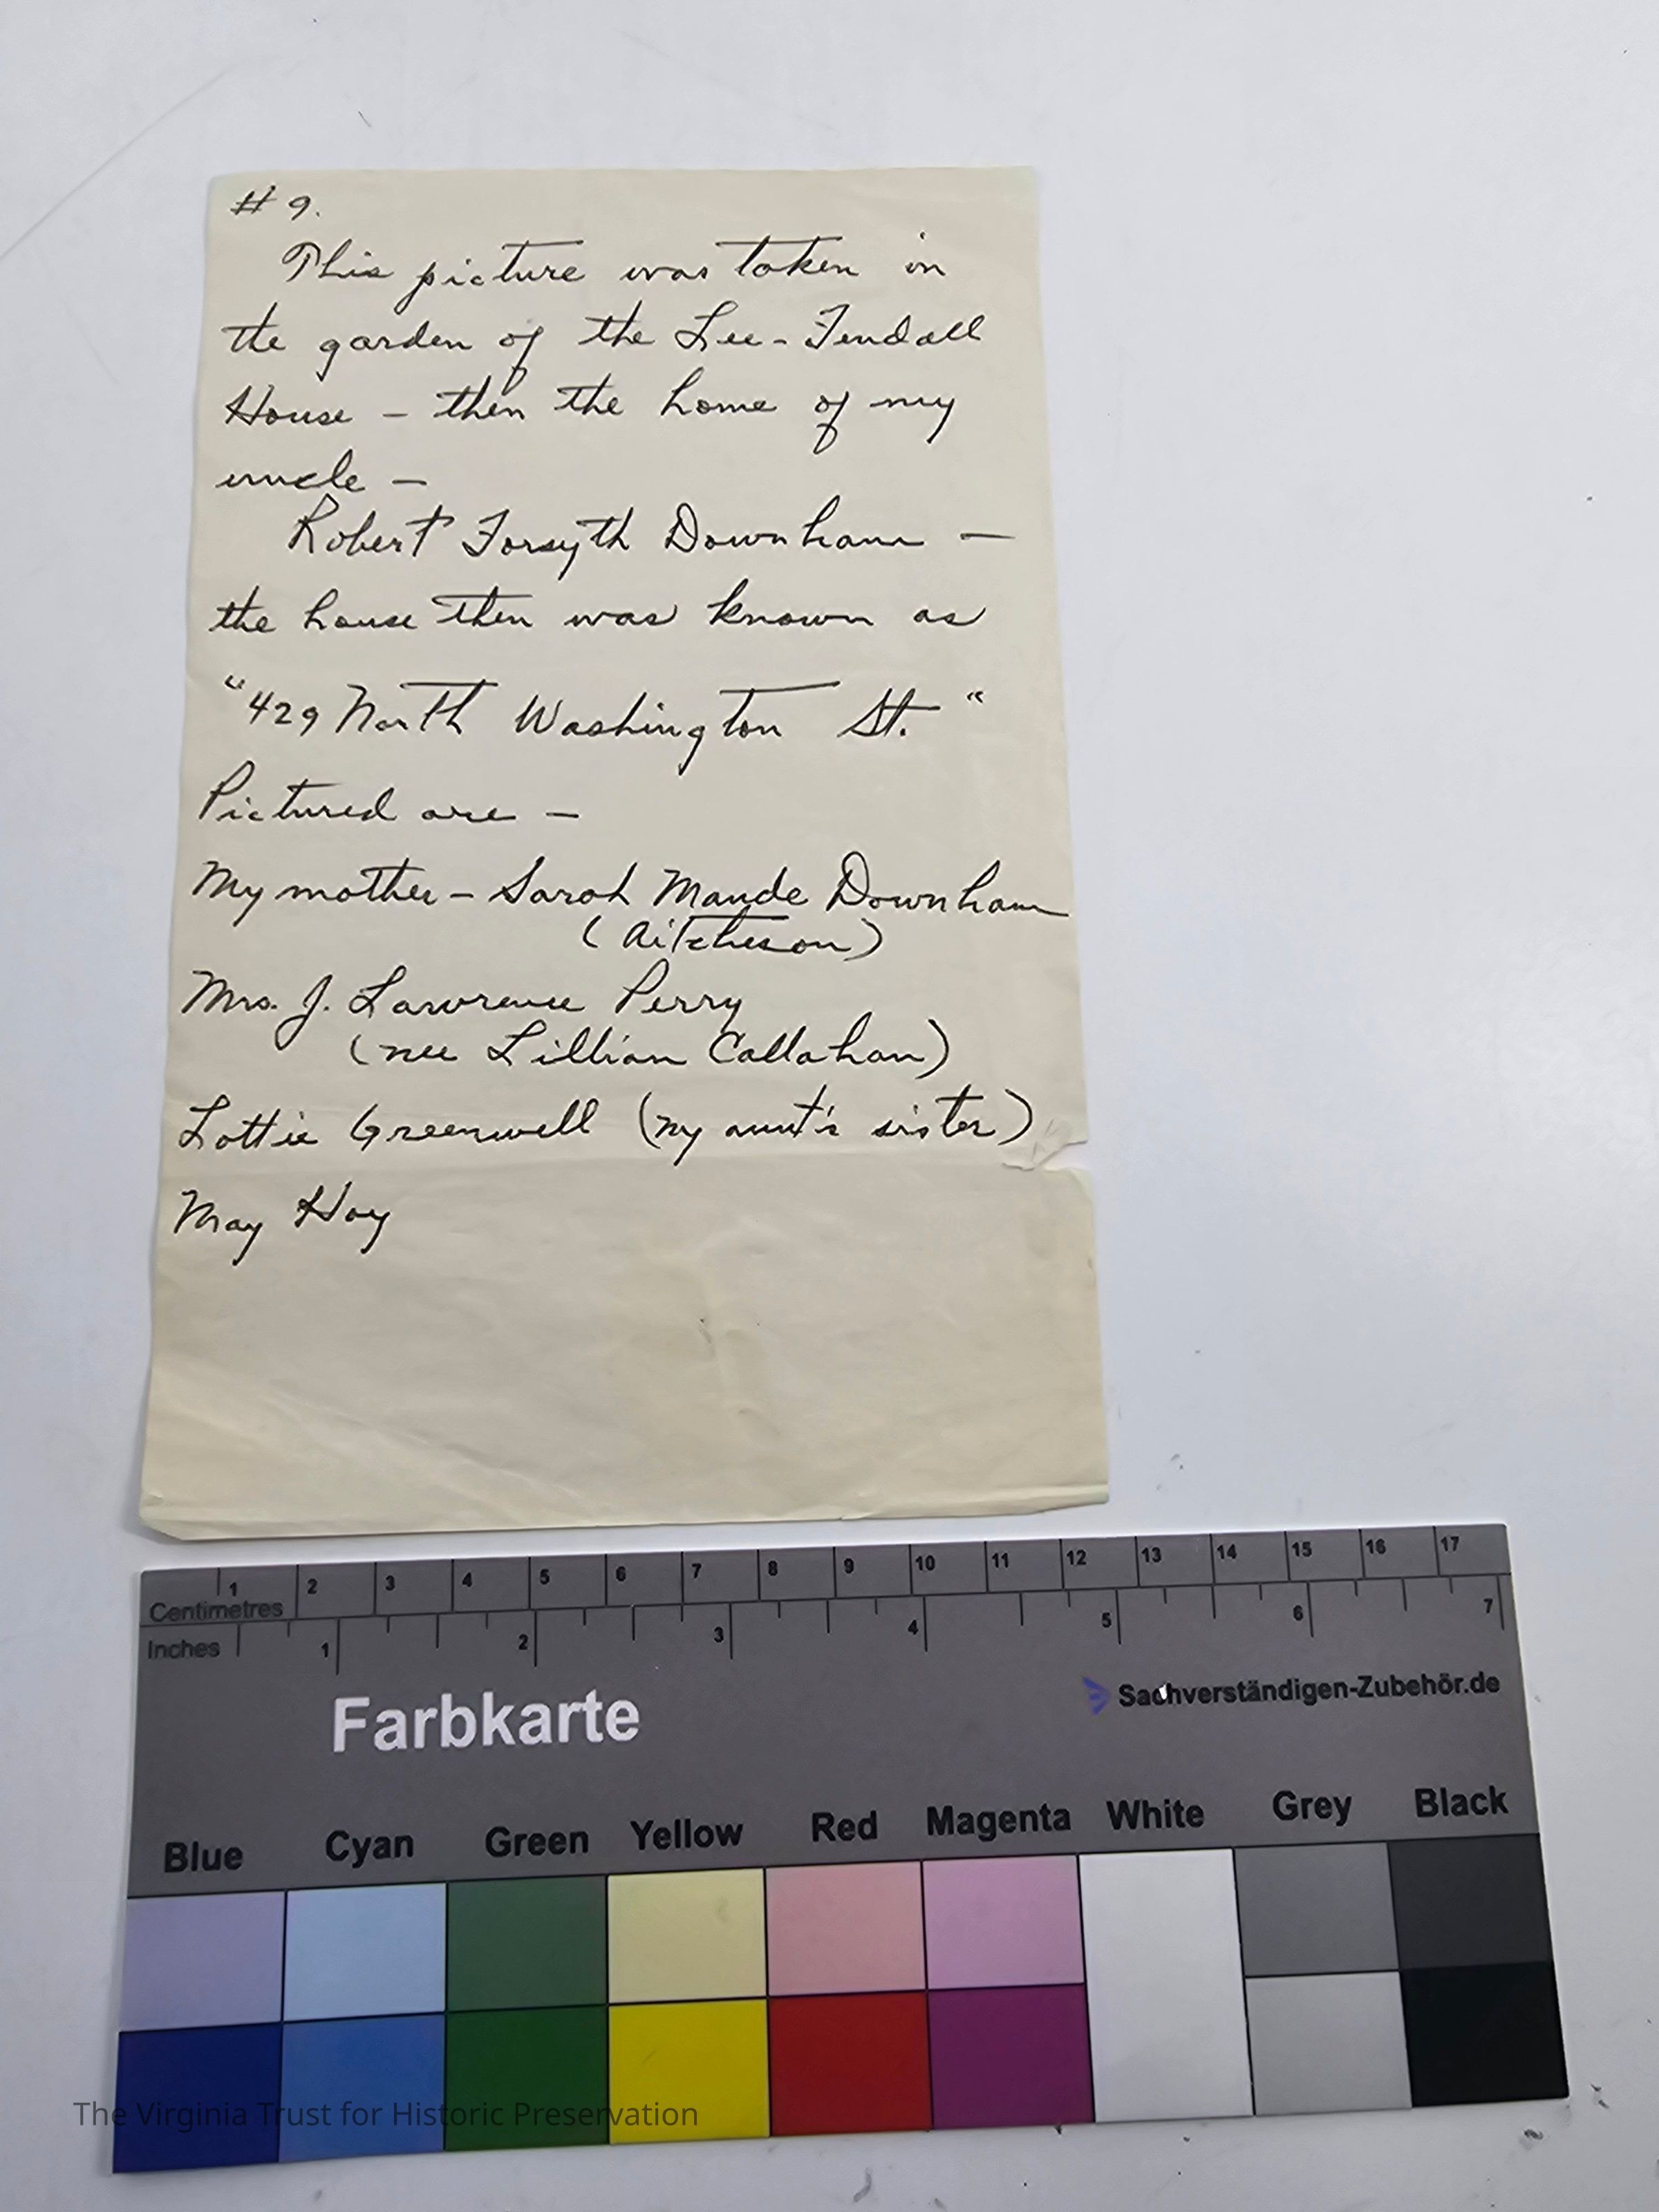 # 9.
This picture was taken in
the garden of the Lee-Fendall
House - then the home of my
uncle -
Robert Forsyth Downham -
the house then was known as
"429 North Washington St."
Pictured are -
My mother - Sarah Maude Downham
(Aitcheson)
Mrs. J. Lawrence Perry
(nee Lillian Callahan)
Lottie Greenwell (my aunt's sister)
May Hoy
1 2 3 4 5 6 7 8 9 10 11 12 13 14 15 16 17
Centimetres
Inches 1 2 3 4 5 6 7
Sachverständigen-Zubehör.de
Farbkarte
Blue Cyan Green Yellow Red Magenta White Grey Black
The Virginia Trust for Historic Preservation